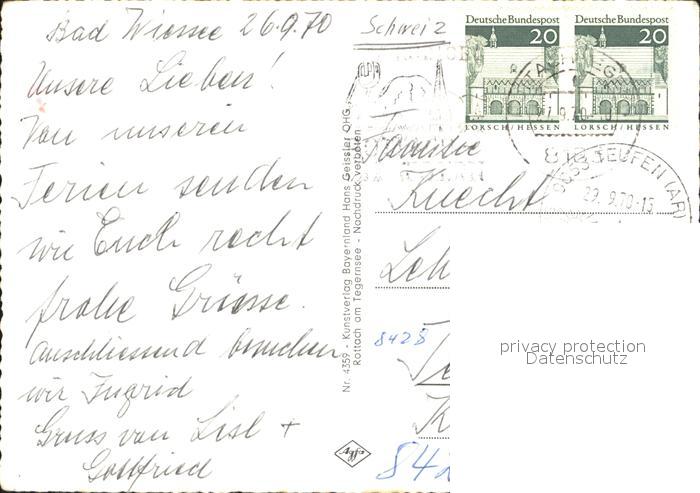 Bad Wiessee 26.9.70
Unsere Lieben!
Von unseren
Ferien senden
wir Euch recht
frohe Grüsse.
Anschliessend besuchen
wir Ingrid
Gruss von Lisl +
Gottfried
Nr. 4359 - Kunstverlag Bayernland Hans Geissler OHG,
Rottach am Tegernsee - Nachdruck verboten
Agfa
Schweiz
Deutsche Bundespost
20
LORSCH/HESSEN
Deutsche Bundespost
20
LORSCH/HESSEN
TEUFEN (AR)
29. 9.70-15
Familie
Knecht
8428
privacy protection
Datenschutz